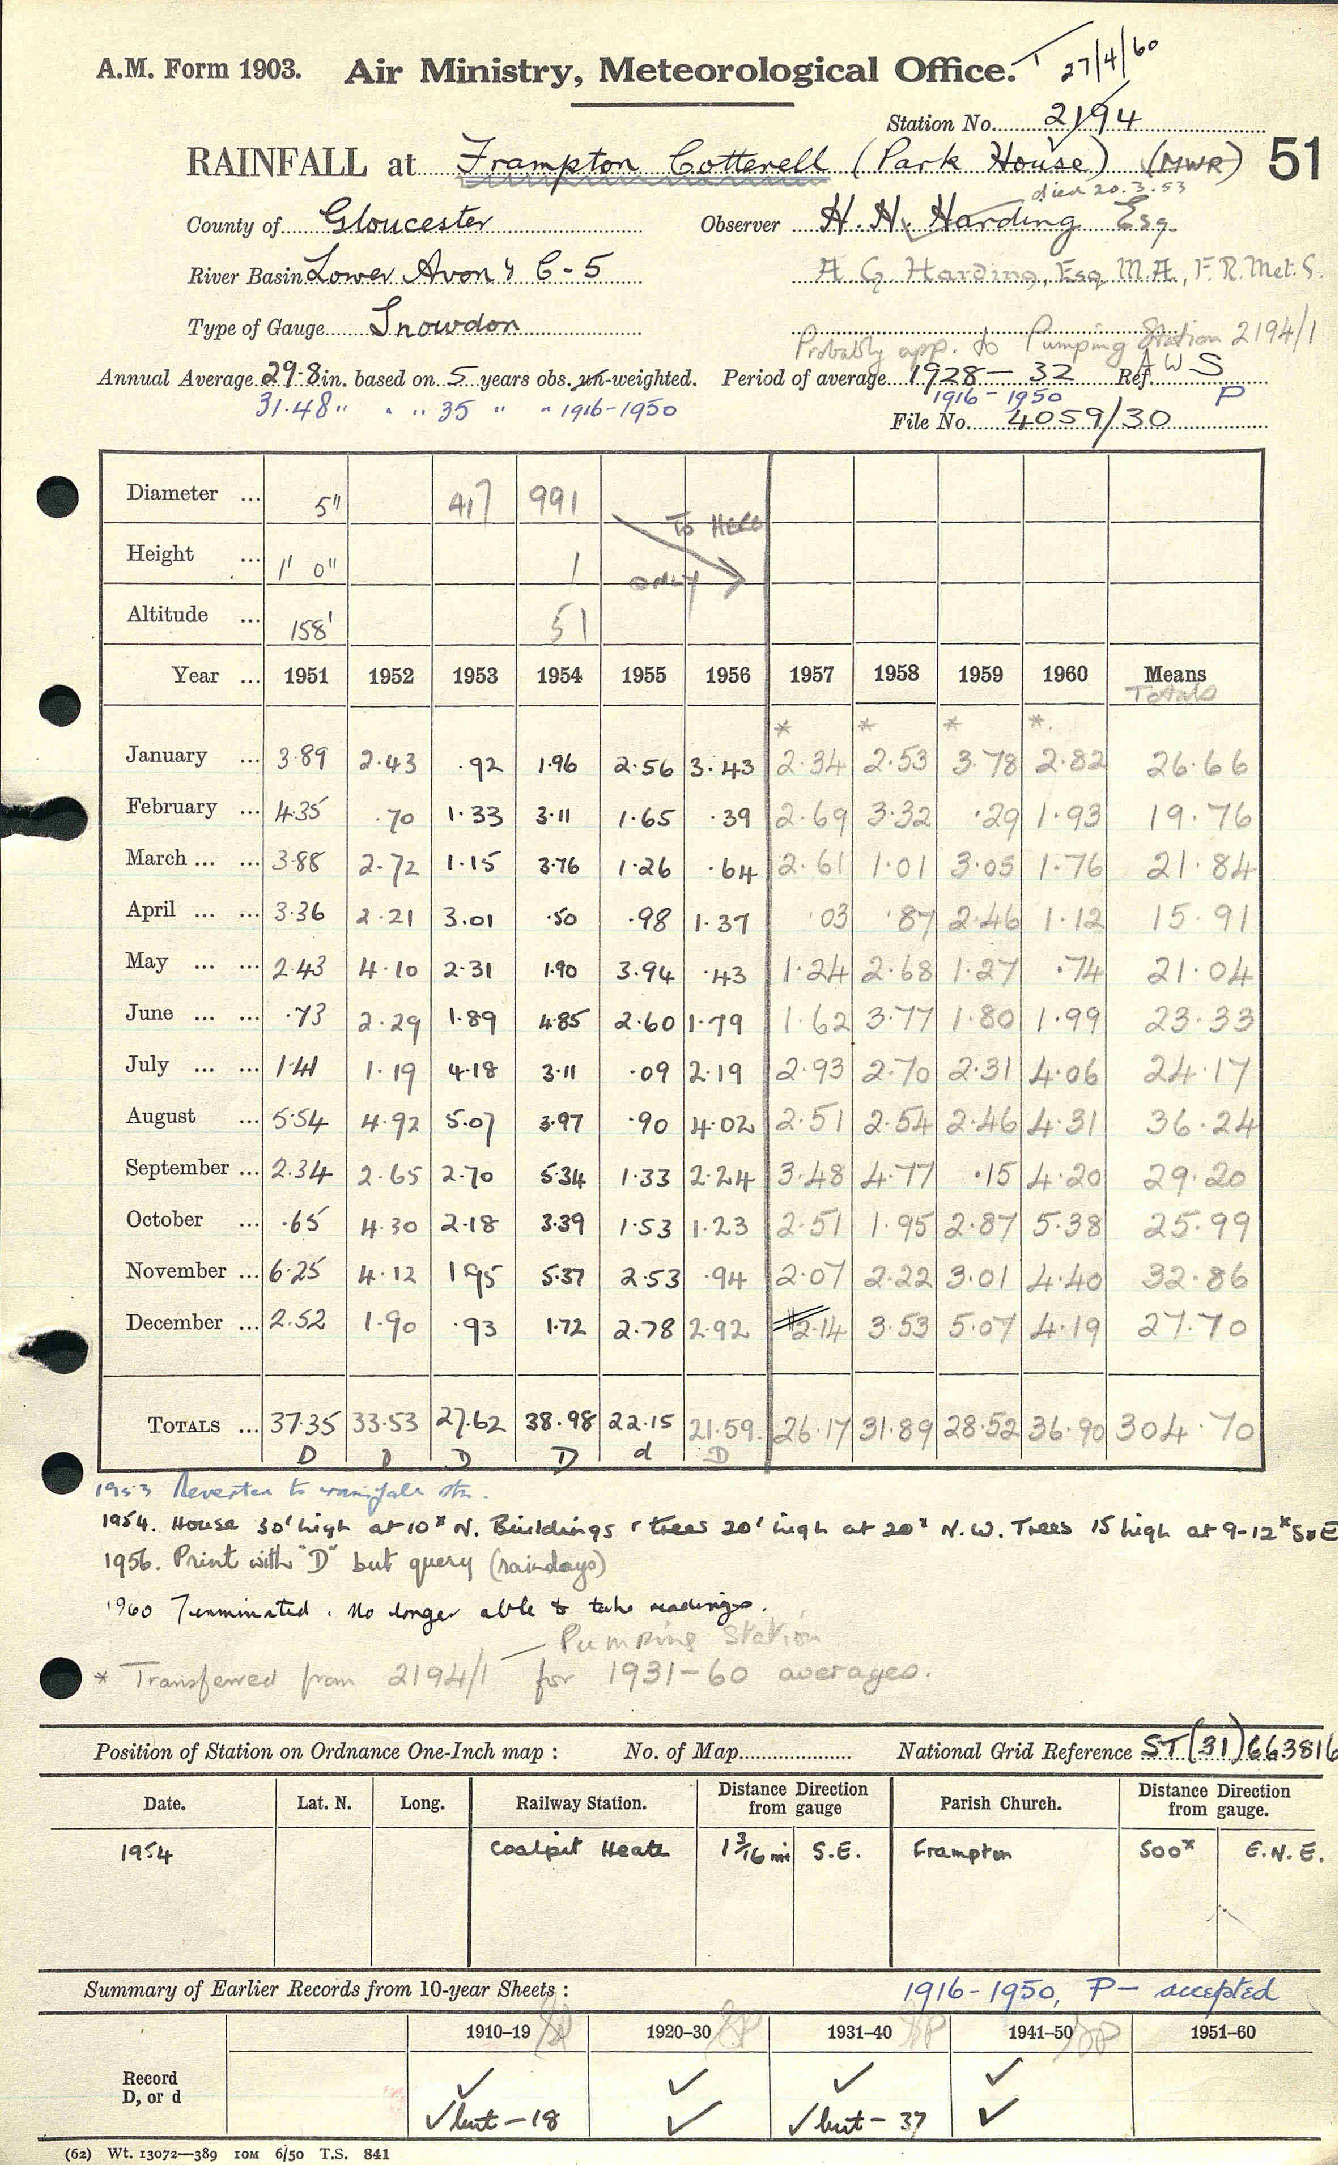 27/4/60
A.M. Form 1903. Air Ministry, Meteorological Office.
Station No. 2194
RAINFALL at Frampton Cotterell (Park House) (MWR) 51
died 20.3.53
County of Gloucester Observer H. H. Harding Esq
River Basin Lower Avon & C-5 A G Harding, Esq M.A., F.R.Met.S.
Type of Gauge Snowdon
Probably app. to Pumping Station 2194/1
Annual Average 29.8 in. based on 5 years obs. un-weighted. Period of average 1928-32 Ref. AWS
31.48" " " 35 " " 1916-1950 1916-1950 P
File No. 4059/30
Diameter ... 5" 417 991
TO HERE
Height ... 1' 0" 1 ONLY
Altitude ... 158' 51
Year ... 1951 1952 1953 1954 1955 1956 1957 1958 1959 1960 Means
Totals
* * * *.
January ... 3.89 2.43 .92 1.96 2.56 3.43 2.34 2.53 3.78 2.82 26.66
February ... 4.35 .70 1.33 3.11 1.65 .39 2.69 3.32 .29 1.93 19.76
March ... ... 3.88 2.72 1.15 3.76 1.26 .64 2.61 1.01 3.05 1.76 21.84
April ... ... 3.36 2.21 3.01 .50 .98 1.37 .03 .87 2.46 1.12 15.91
May ... ... 2.43 4.10 2.31 1.90 3.94 .43 1.24 2.68 1.27 .74 21.04
June ... ... .73 2.29 1.89 4.85 2.60 1.79 1.62 3.77 1.80 1.99 23.33
July ... ... 1.41 1.19 4.18 3.11 .09 2.19 2.93 2.70 2.31 4.06 24.17
August ... 5.54 4.92 5.07 3.97 .90 4.02 2.51 2.54 2.46 4.31 36.24
September ... 2.34 2.65 2.70 5.34 1.33 2.24 3.48 4.77 .15 4.20 29.20
October ... .65 4.30 2.18 3.39 1.53 1.23 2.51 1.95 2.87 5.38 25.99
November ... 6.25 4.12 1.95 5.37 2.53 .94 2.07 2.22 3.01 4.40 32.86
December ... 2.52 1.90 .93 1.72 2.78 2.92 2.14 3.53 5.07 4.19 27.70
TOTALS ... 37.35 33.53 27.62 38.98 22.15 21.59 26.17 31.89 28.52 36.90 304.70
D D D D d D
1953 Reverted to rainfall stn.
1954. House 30' high at 10ˣ N. Buildings & trees 20' high at 20ˣ N.W. Trees 15 high at 9-12ˣ S&E
1956. Print with "D" but query (raindays)
1960 Terminated. No longer able to take readings.
Pumping Station
* Transferred from 2194/1 for 1931-60 averages.
Position of Station on Ordnance One-Inch map : No. of Map National Grid Reference ST(31)663816
Date. Lat. N. Long. Railway Station. Distance Direction from gauge Parish Church. Distance Direction from gauge.
1954 Coalpit Heath 1 3/16 mi S.E. Frampton 500ˣ E.N.E.
Summary of Earlier Records from 10-year Sheets : 1916-1950, P- accepted
1910-19 1920-30 1931-40 1941-50 1951-60
Record ✓ ✓ ✓ ✓
D, or d ✓ but -18 ✓ ✓ but - 37 ✓
(62) Wt. 13072—389 10M 6/50 T.S. 841